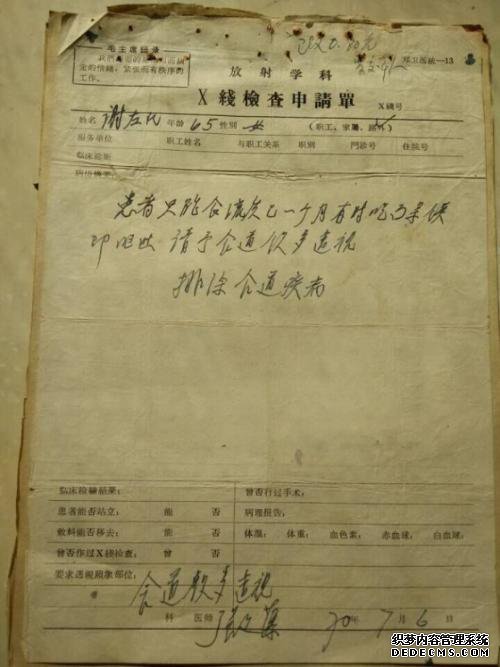 毛主席語录
定的情緒，紧张而有秩序的
工作。
郑卫医統—13
放射学科
X綫檢查申請單
X綫号
姓名 谢左氏 年龄 65 性別 女 （职工，家屬，路外）
服务单位 职工姓名 与职工关系 职別 門診号 住院号
臨床診断
病情摘要
患者只能食流质已一个月有时吃了东西
即呕吐 请予食道钡鋇透视
排除食道疾病
臨床檢驗結果： 曾否行过手术：
患者能否站立： 能 否 病理报告：
敷料能否移去： 能 否 体溫： 体重： 血色素： 赤血球： 白血球：
曾否作过X綫檢查： 曾 否
要求透視照象部位：
食道 透视
科 医师 70年 7月 6日
织梦内容管理系统
DEDECMS.COM